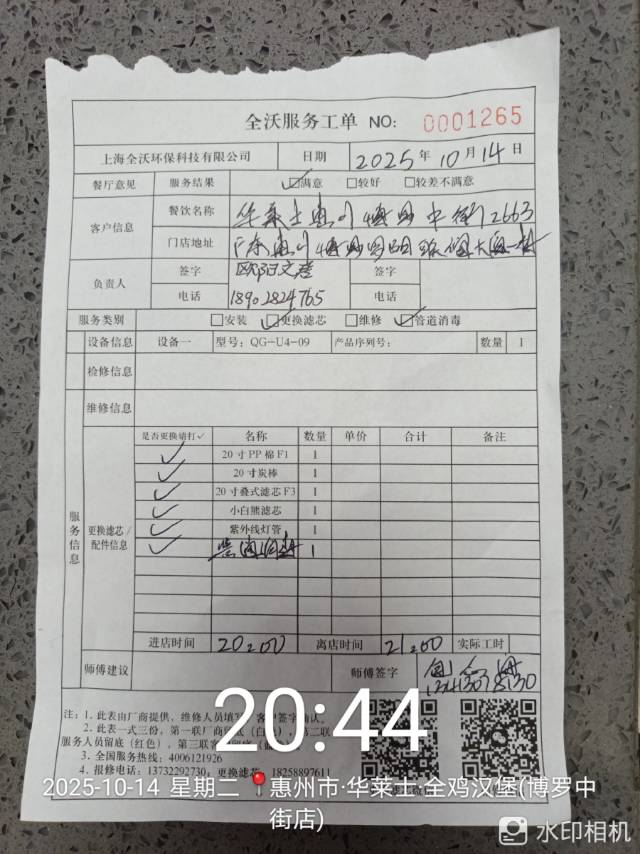 全沃服务工单 NO: 0001265
上海全沃环保科技有限公司 日期 2025年10月14日
餐厅意见 服务结果 ☑满意 □较好 □较差不满意
客户信息 餐饮名称 华莱士惠州博罗中街2663
门店地址 广东惠州博罗
负责人 签字 签字
电话 18902824765 电话
服务类别 □安装 ☑更换滤芯 □维修 ☑管道消毒
设备信息 设备一 型号: QG-U4-09 产品序列号: 数量 1
检修信息
维修信息
服务信息
更换滤芯/配件信息
是否更换请打✓ 名称 数量 单价 合计 备注
✓ 20寸PP棉F1 1
✓ 20寸炭棒 1
✓ 20寸叠式滤芯F3 1
✓ 小白熊滤芯 1
✓ 紫外线灯管 1
✓ 1
进店时间 20:00 离店时间 21:00 实际工时
师傅建议 师傅签字
注: 1. 此表由厂商提供, 维修人员填写, 客户签字确认。
2. 此表一式三份, 第一联厂商留底(白
服务人员留底(红色), 第三联
3. 全国服务热线: 4006121926
4. 报修电话: 13732292730, 更换滤芯: 18258897611
20:44
2025-10-14 星期二 惠州市·华莱士·全鸡汉堡(博罗中
街店)
水印相机